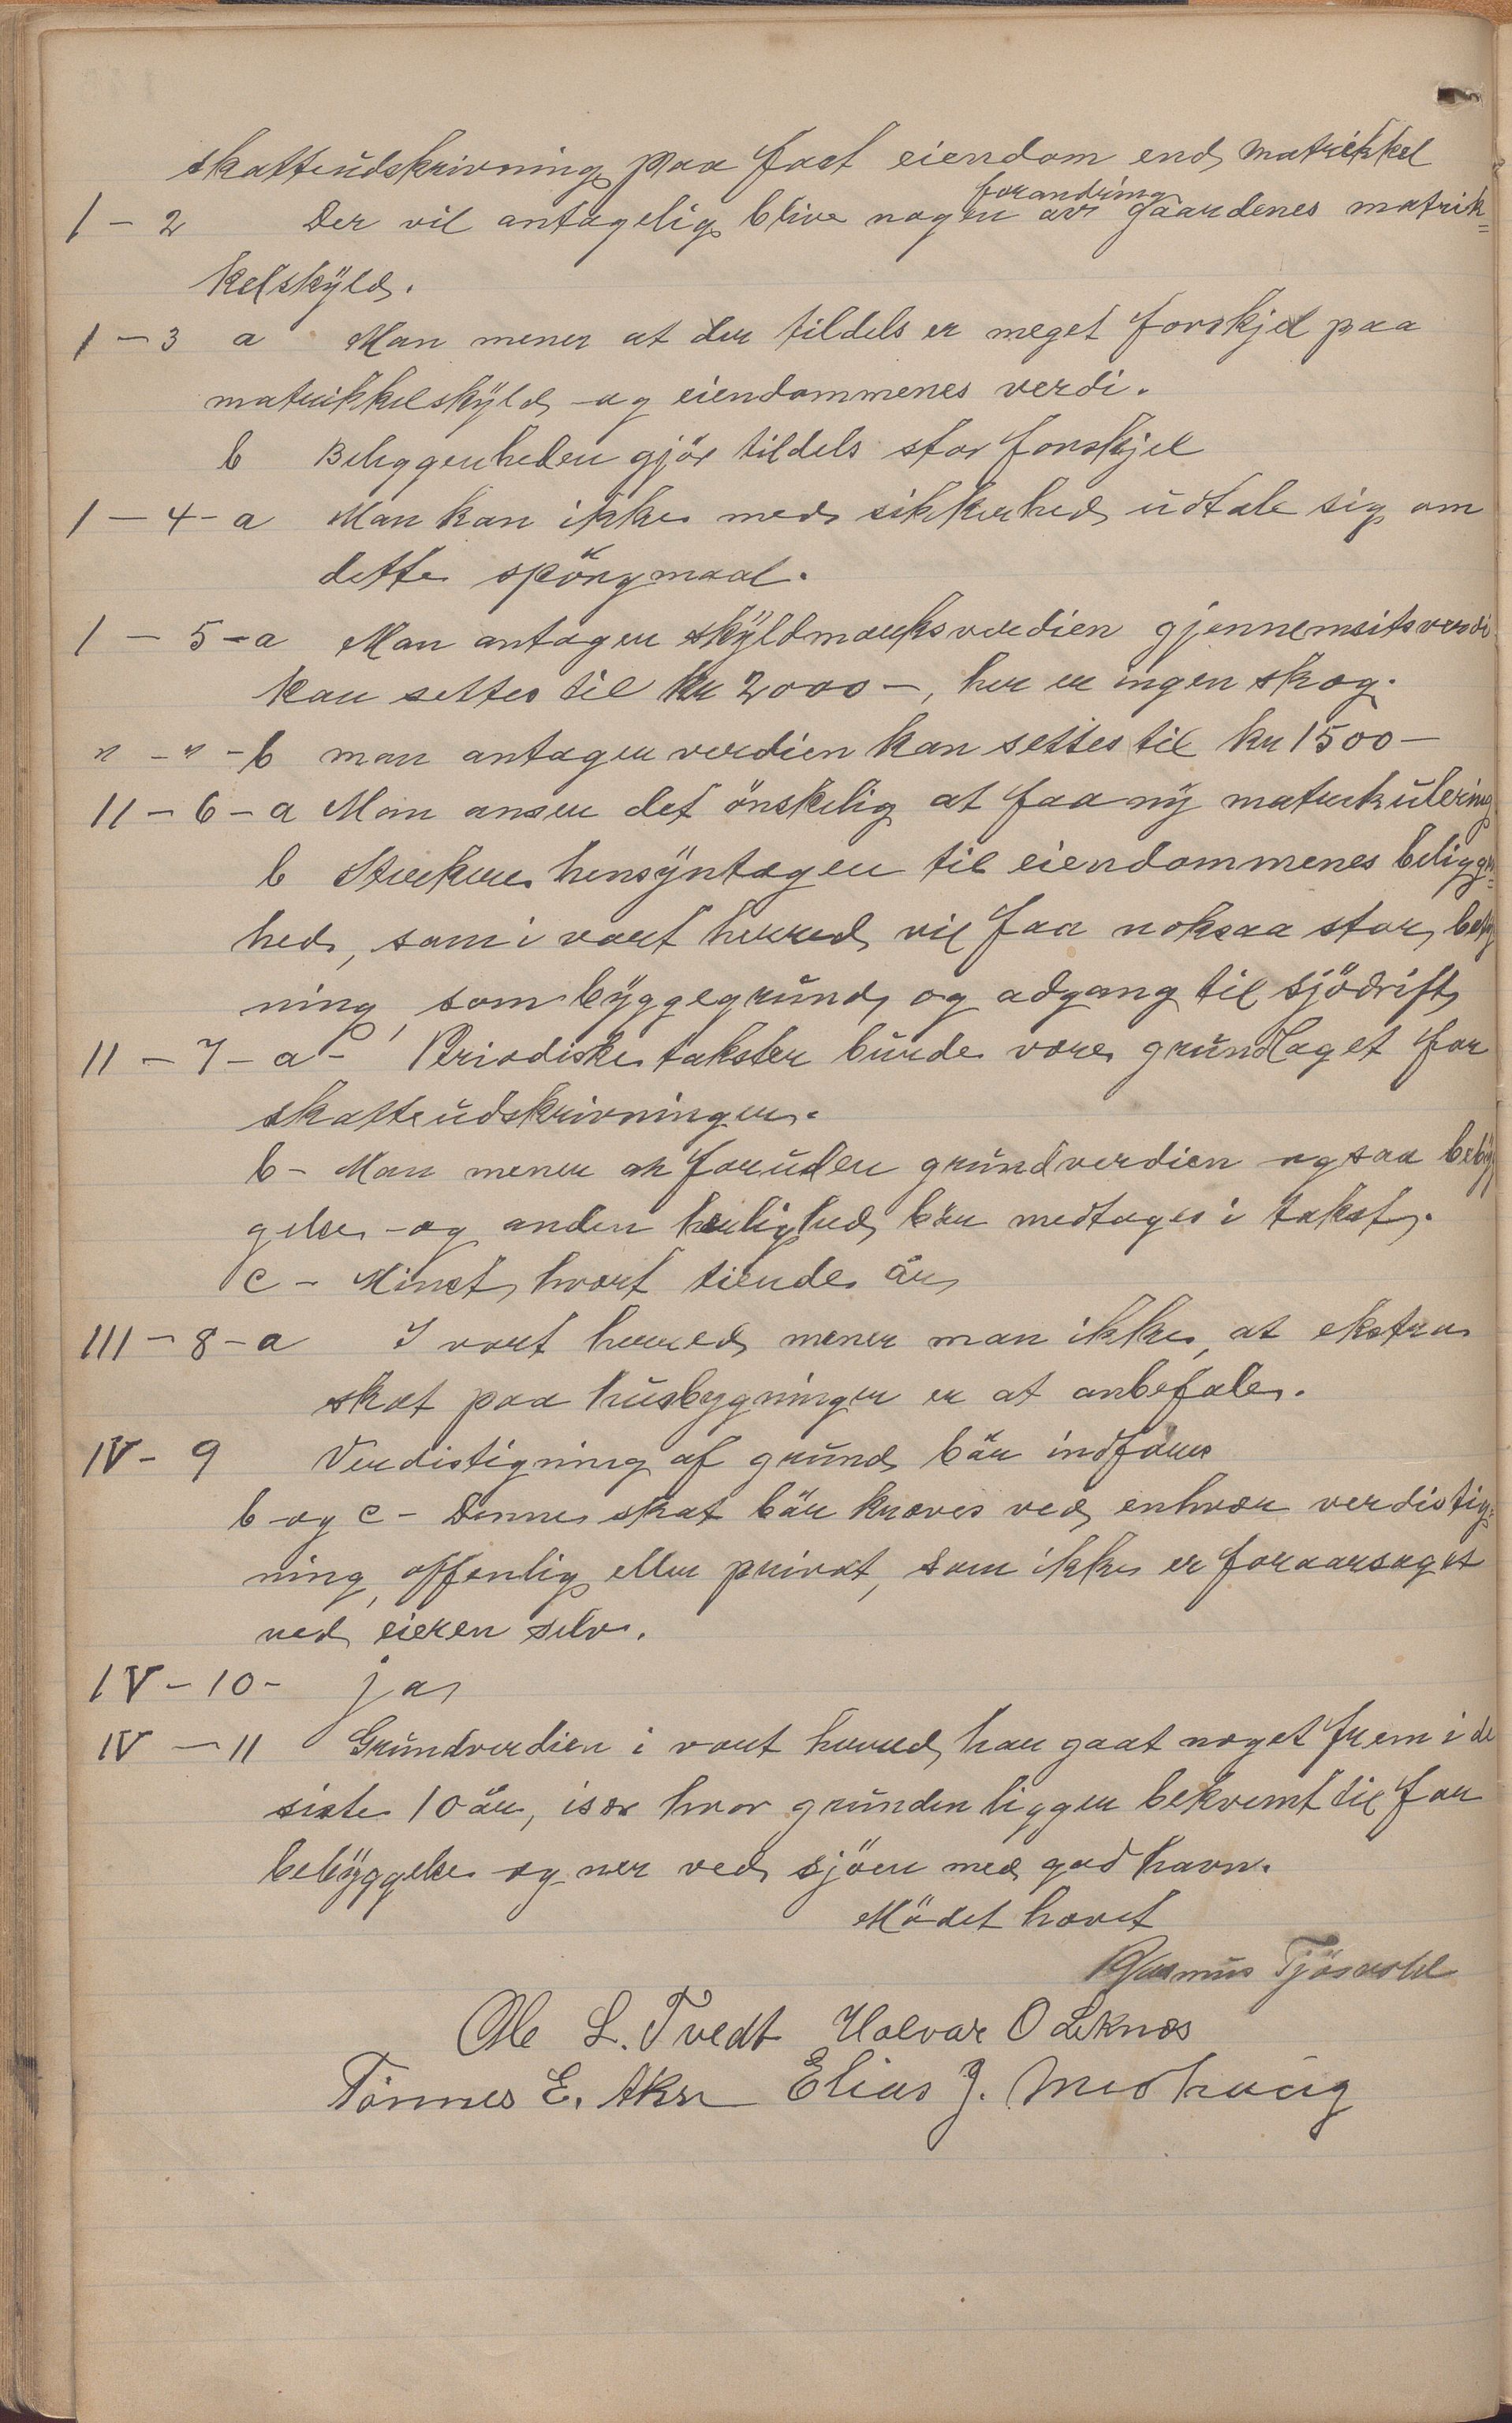 skatteudskrivning paa fast eiendom end matrikkel
1 - 2 Der vil antagelig blive nogen forandring av gaardenes matrik=
kelskyld.
1 - 3 a Man mener at der tildels er meget forskjel paa
matrikkelskyld og eiendommenes verdi.
b Beliggenheden gjör tildels stor forskjel
1 - 4 - a Man kan ikke med sikkerhed udtale sig om
dette spörgmaal.
1 - 5 - a Man antager skyldmarksverdien gjennemsitsverdi
kan settes til kr 2000 -, her er ingen skog.
" - " - b man antager verdien kan settes til kr 1500 -
II - 6 - a Man anser det önskelig at faa ny matrikulering
b Sterkere hensyntagen til eiendommenes beliggen=
hed, som i vort herred vil faa noksaa stor betyd
ning som byggegrund og adgang til sjödrift
II - 7 - a - Periodiske takster burde være grundlaget for
skatteudskrivningen.
b - Man mener at foruden grundverdien ogsaa bebyg
gelse og anden herlighed bör medtages i takst.
c - Minst hvert tiende år
III - 8 - a I vort herred mener man ikke, at ekstra
skat paa husbygninger er at anbefale.
IV - 9 Verdistigning af grund bör indföres
b og c - Denne skat bör kræves ved enhver verdistig=
ning, offenlig eller privat, som ikke er foraarsaget
ved eieren selv.
IV - 10 - ja
IV - 11 Grundverdien i vort herred har gaat noget frem i de
siste 10 år, især hvor grunden ligger bekvemt til for
bebyggelse og nær ved sjöen med god havn.
Mödet hævet
Rasmus Tjösvold
Ole L. Tvedt Halvar O Leknes
Tönnes E. Akre Elias J. Medhaug